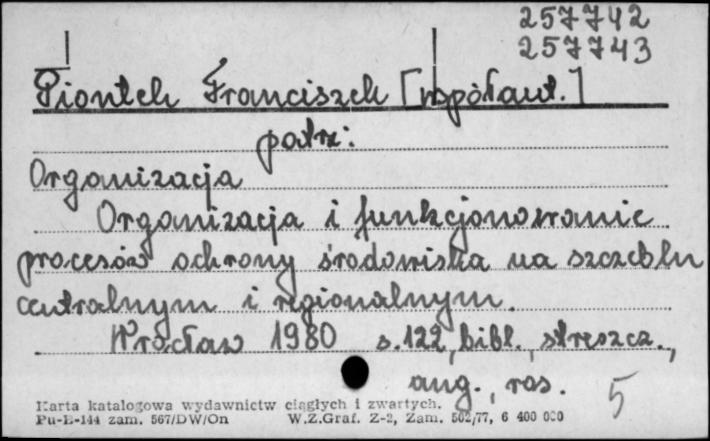 257742
257743
Piontek Franciszek [współaut.]
patrz:
Organizacja
Organizacja i funkcjonowanie
procesów ochrony środowiska na szczeblu
centralnym i regionalnym.
Wrocław 1980 s. 122, bibl., streszcz.,
ang., ros.
5
Karta katalogowa wydawnictw ciągłych i zwartych.
Pu-B-144 zam. 567/DW/On W.Z.Graf. Z-2, Zam. 502/77, 6 400 000